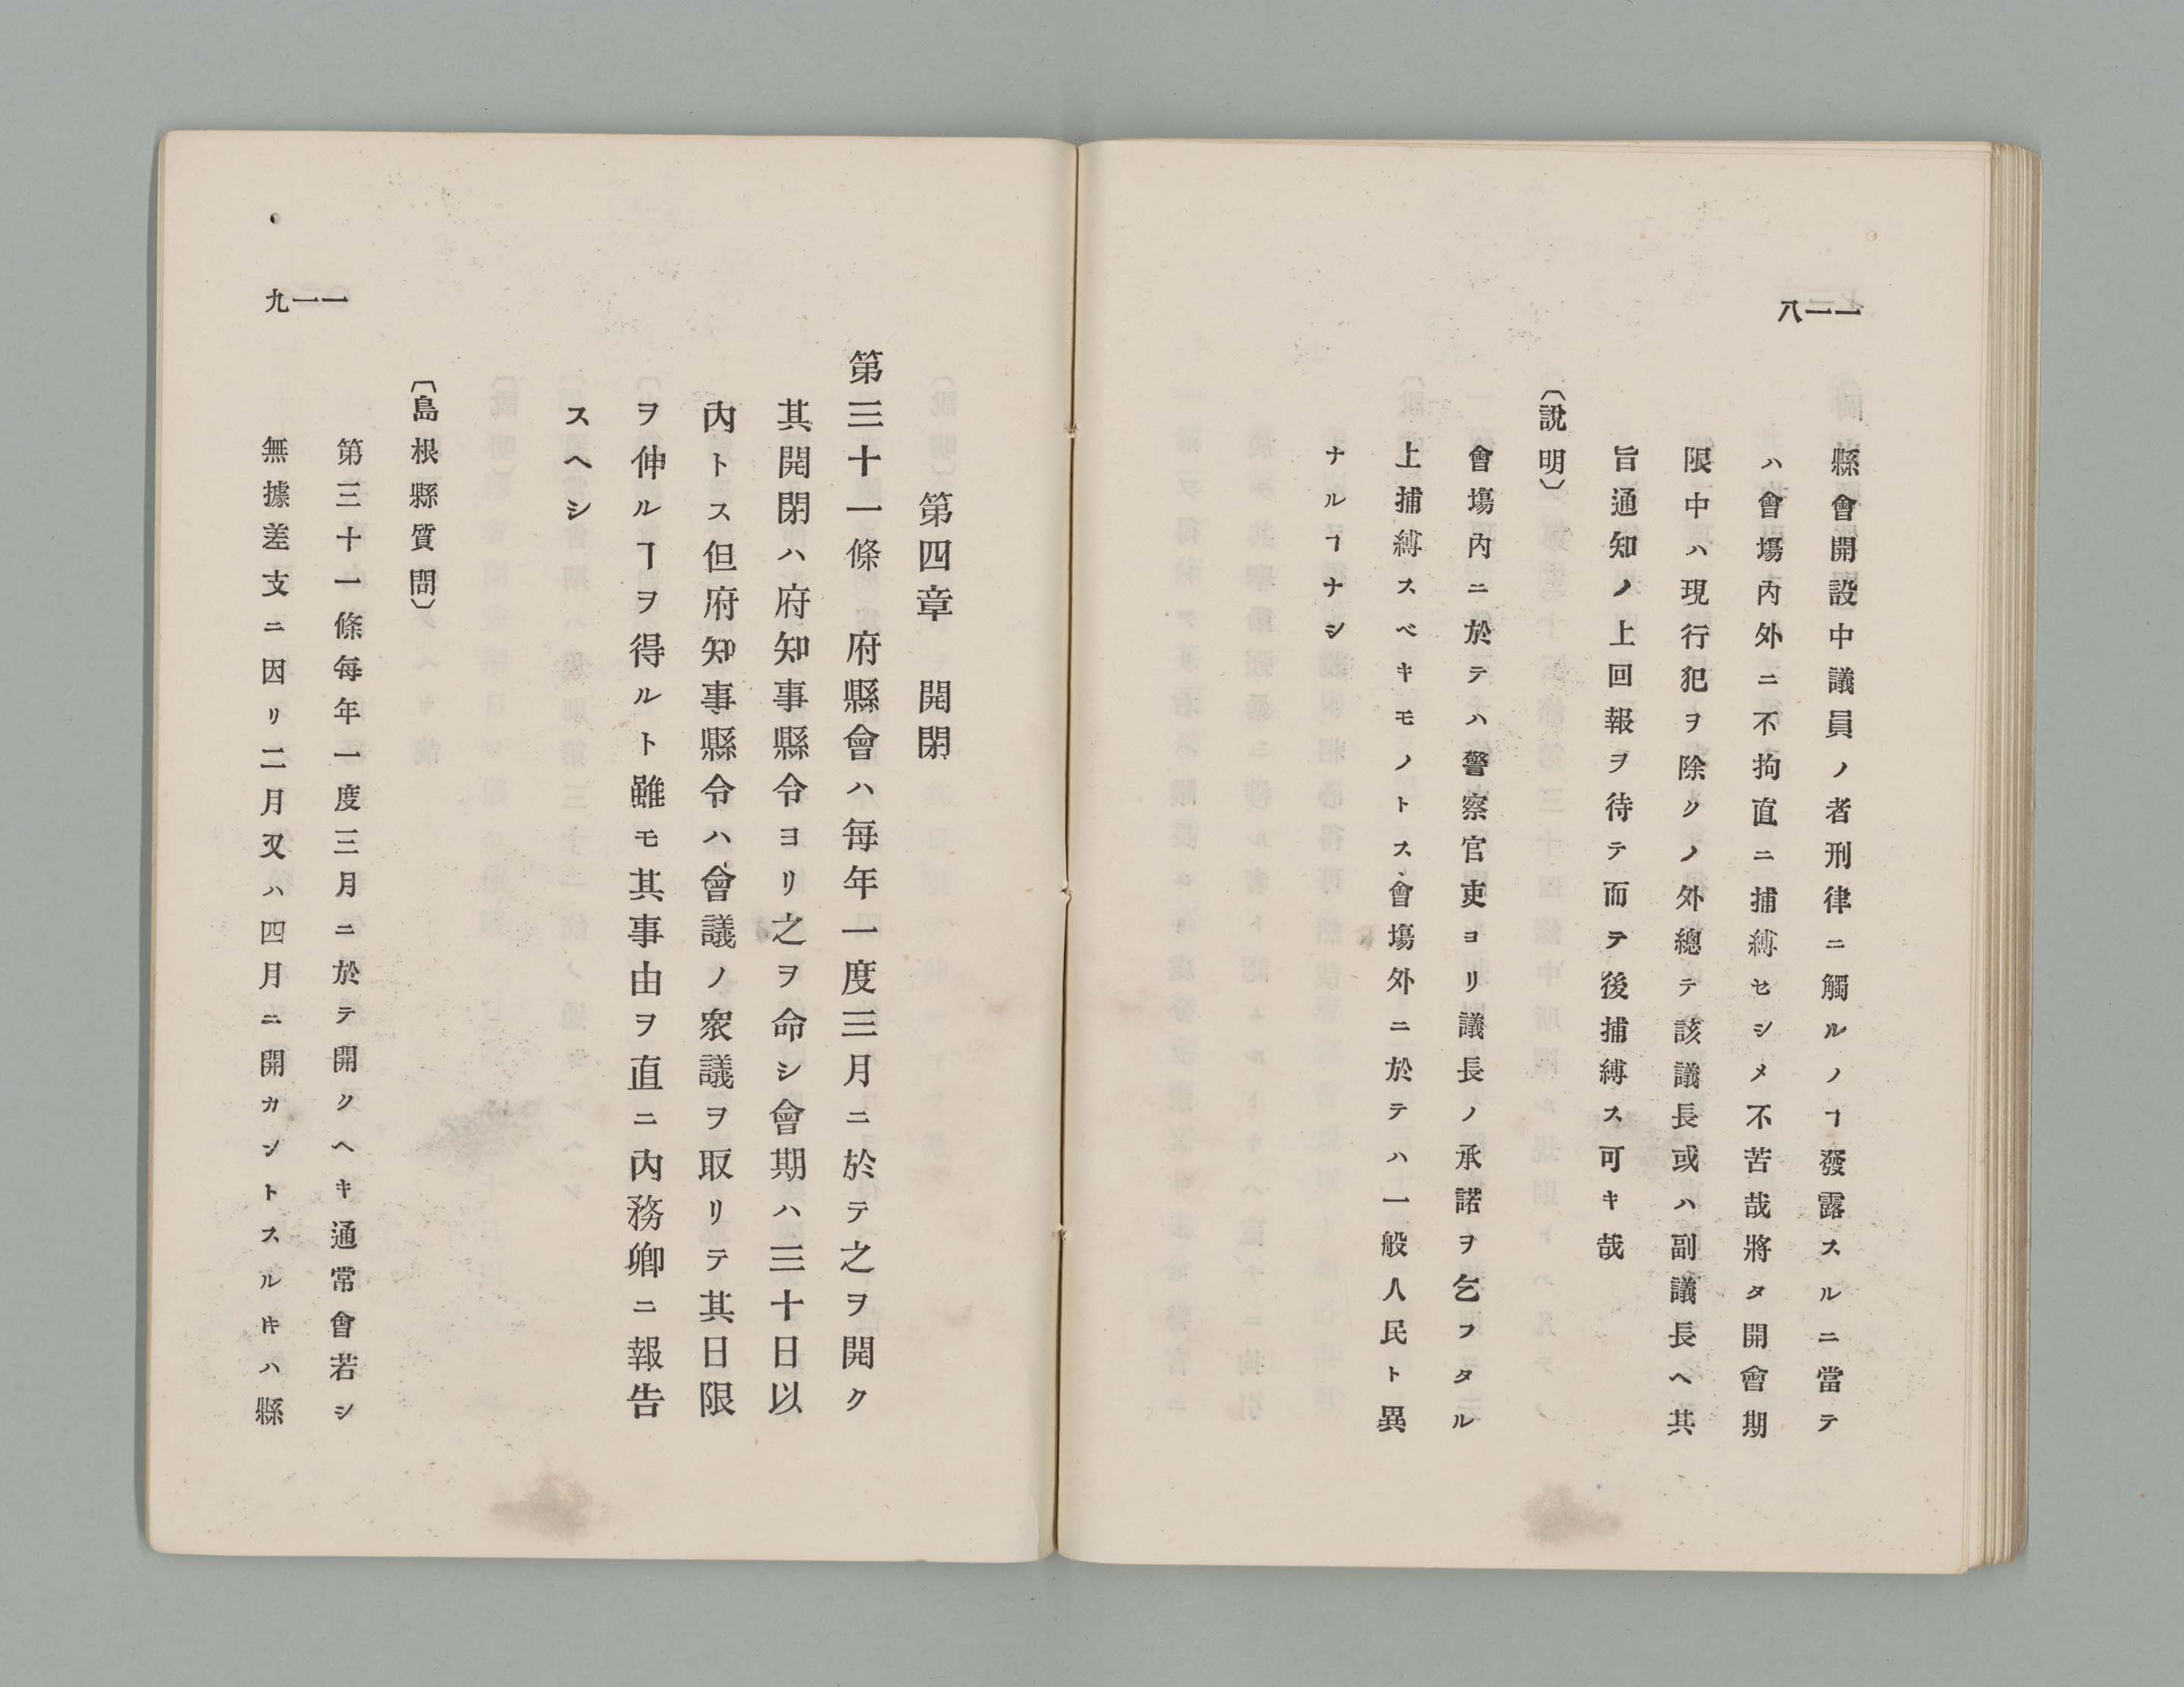 一一八
縣會開設中議員ノ者刑律ニ觸ルノヿ發露スルニ當テ
ハ會塲内外ニ不拘直ニ捕縛セシメ不苦哉將タ開會期
限中ハ現行犯ヲ除クノ外總テ該議長或ハ副議長ヘ其
旨通知ノ上回報ヲ待テ而テ後捕縛ス可キ哉
〔說明〕
會塲内ニ於テハ警察官吏ヨリ議長ノ承諾ヲ乞フタル
上捕縛スベキモノトス、會塲外ニ於テハ一般人民ト異
ナルヿナシ
第四章　開閉
第三十一條　府縣會ハ每年一度三月ニ於テ之ヲ開ク
其開閉ハ府知事縣令ヨリ之ヲ命シ會期ハ三十日以
内トス但府知事縣令ハ會議ノ衆議ヲ取リテ其日限
ヲ伸ルヿヲ得ルト雖モ其事由ヲ直ニ内務卿ニ報告
スヘシ
〔島根縣質問〕
第三十一條每年一度三月ニ於テ開クヘキ通常會若シ
無據差支ニ因リ二月又ハ四月ニ開カントスル𪜈ハ縣
一一九